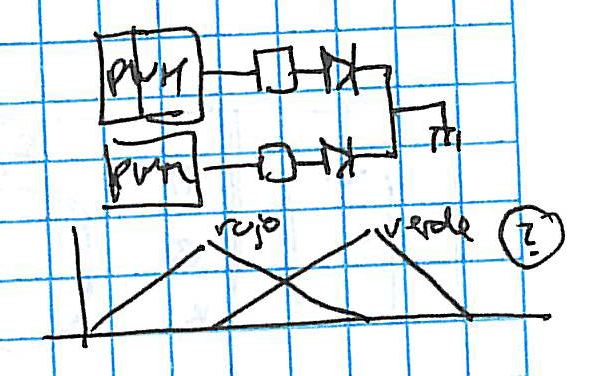 PWM
PWM
rojo verde ?